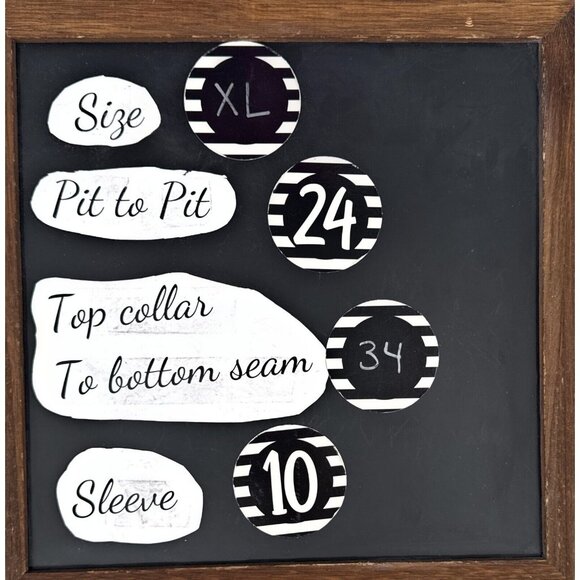 Size XL
Pit to Pit 24
Top collar
To bottom seam 34
Sleeve 10